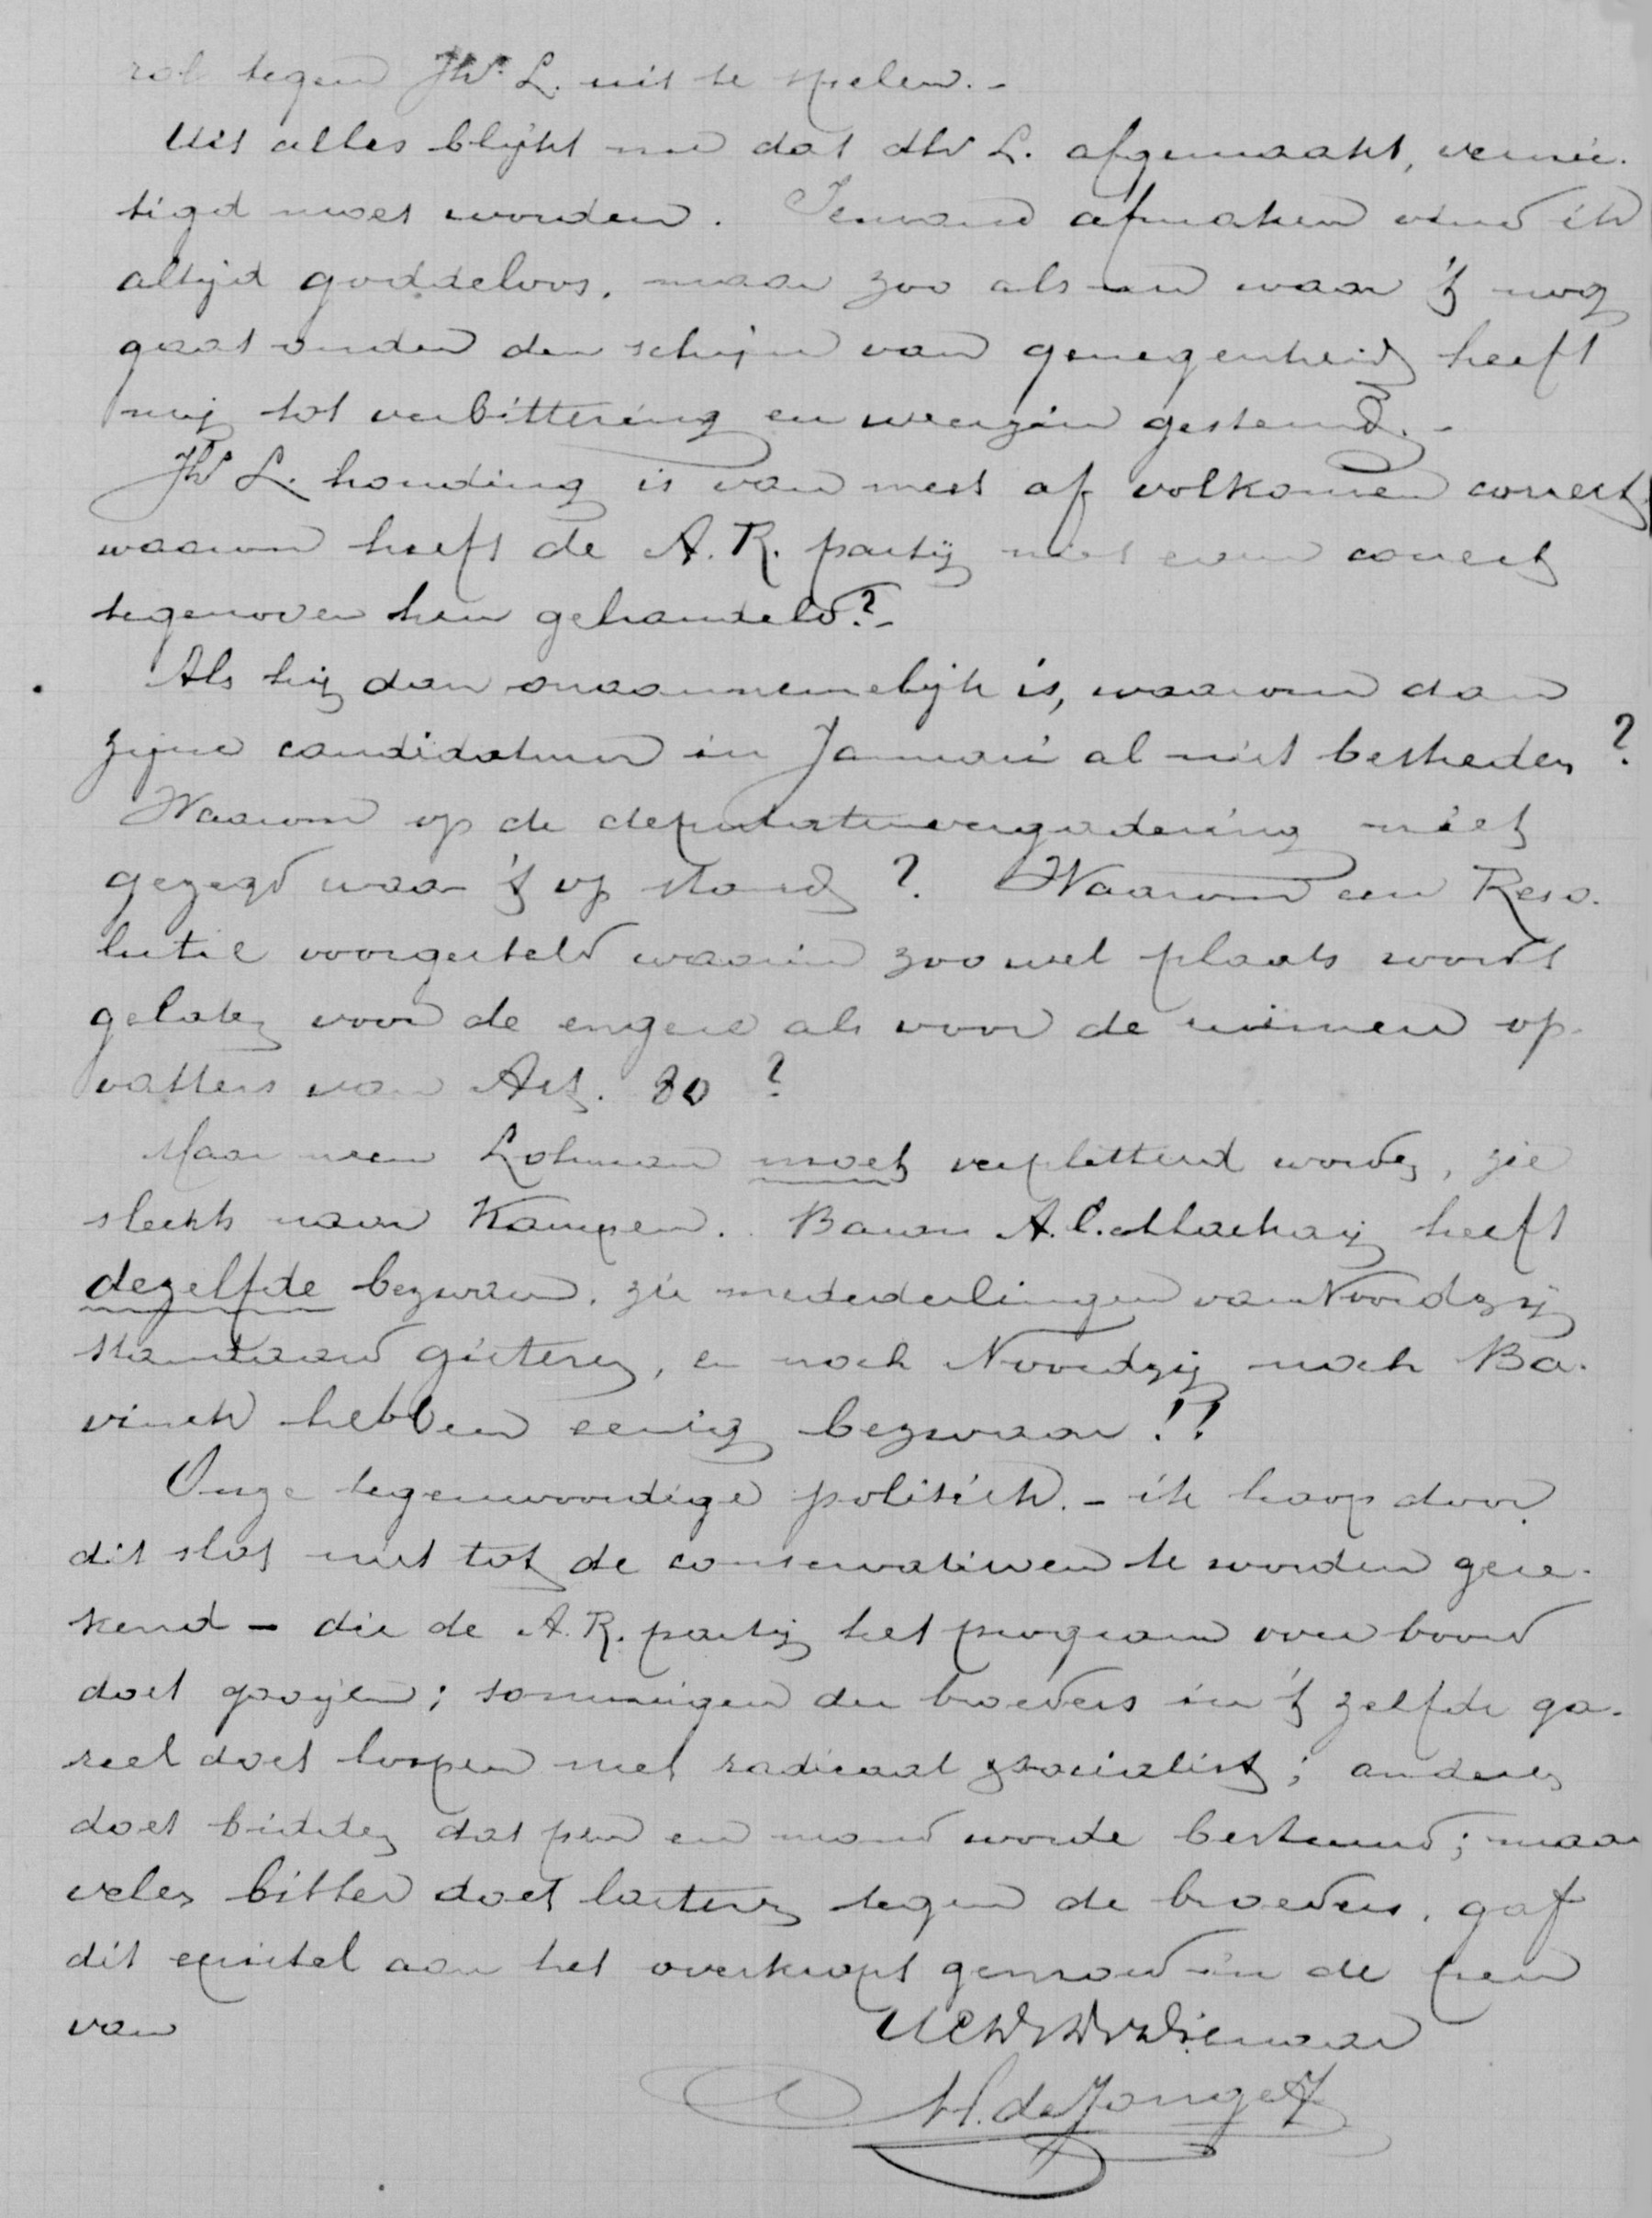 rol tegen Jhr. L. uit te spelen. -
Uit alles blijkt nu dat dhr L. afgemaakt, vernie-
tigd moet worden. Iemand afmaken vind ik
altijd goddeloos, maar zoo als nu waar 't nog
gaat onder den schijn van genegenheid heeft
mij tot verbittering en weerzin gestemd. -
Jhr L. houding is van meet af volkomen correct,
waarom heeft de A. R. partij niet even correct
tegenover hem gehandeld? -
Als hij dan onaannemelijk is, waarom dan
zijne candidatuur in Januari al niet bestreden?
Waarom op de deputatenvergadering niet
gezegd waar 't op stond? Waarom een Reso-
lutie voorgesteld waarin zoowel plaats wordt
gelaten voor de engere als voor de ruimere op-
vatters van Art. 80?
Maar neen Lohman moet verpletterd worden, zie
slechts naar Kampen. Baron A. C. Mackay heeft
dezelfde bezwaren, zie mededeelingen van Noordzij
Standaard gisteren, en noch Noordzij noch Ba-
vinck hebben eenig bezwaar!!
Onze tegenwoordige politiek. - ik hoop door
dit slot niet tot de conservatieven te worden gere-
kend - die de A. R. partij het program over boord
doet gooijen; sommigen der broeders in 't zelfde ga-
reel doet loopen met radicaal socialist; anderen
doet bidden dat pen en mond worde bestuurd; maar
velen bitter doet laeteren tegen de broeders, gaf
dit epistel aan het overkropt gemoed in de pen
van UEdDwDienaar
H. de Jonge